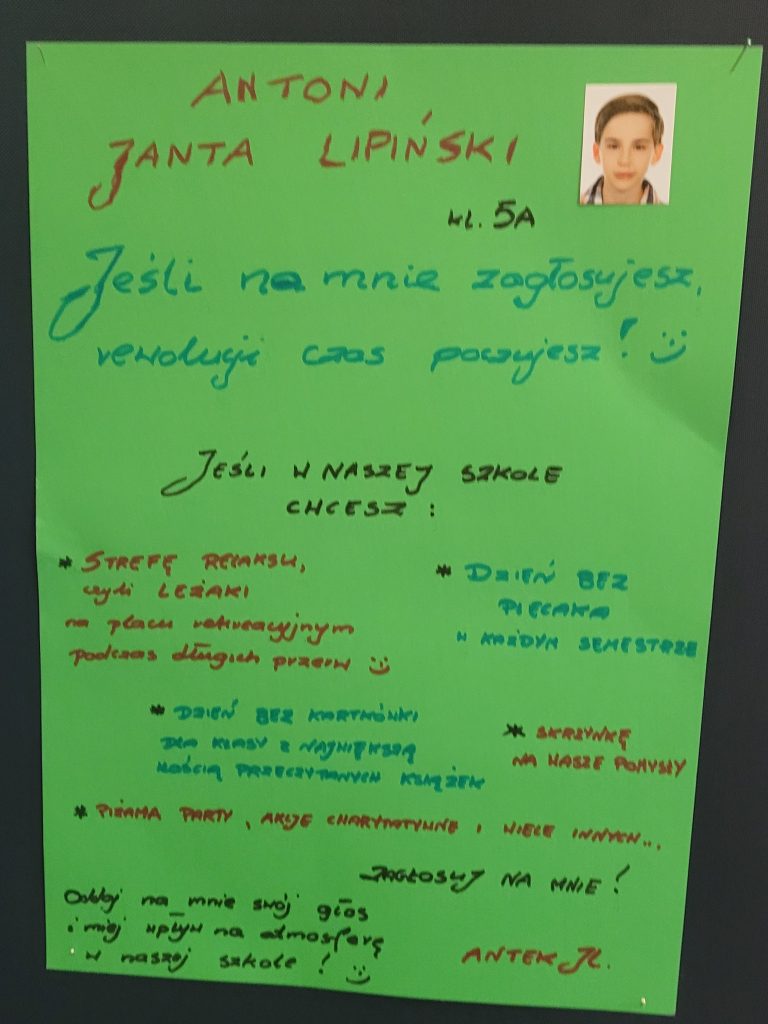 ANTONI
JANTA LIPIŃSKI
kl. 5A
Jeśli na mnie zagłosujesz,
rewolucji czas poczujesz! :)
JEŚLI W NASZEJ SZKOLE
CHCESZ :
* STREFĘ RELAKSU,
czyli LEŻAKI
na placu rekreacyjnym
podczas długich przerw :)
* DZIEŃ BEZ
PLECAKA
W KAŻDYM SEMESTRZE
* DZIEŃ BEZ KARTKÓWKI
DLA KLASY Z NAJWIĘKSZĄ
ILOŚCIĄ PRZECZYTANYCH KSIĄŻEK
* SKRZYNKĘ
NA WASZE POMYSŁY
* PIŻAMA PARTY, AKCJE CHARYTATYWNE I WIELE INNYCH...
ZAGŁOSUJ NA MNIE!
Oddaj na mnie swój głos
i miej wpływ na atmosferę
w naszej szkole! :)
ANTEK JL.